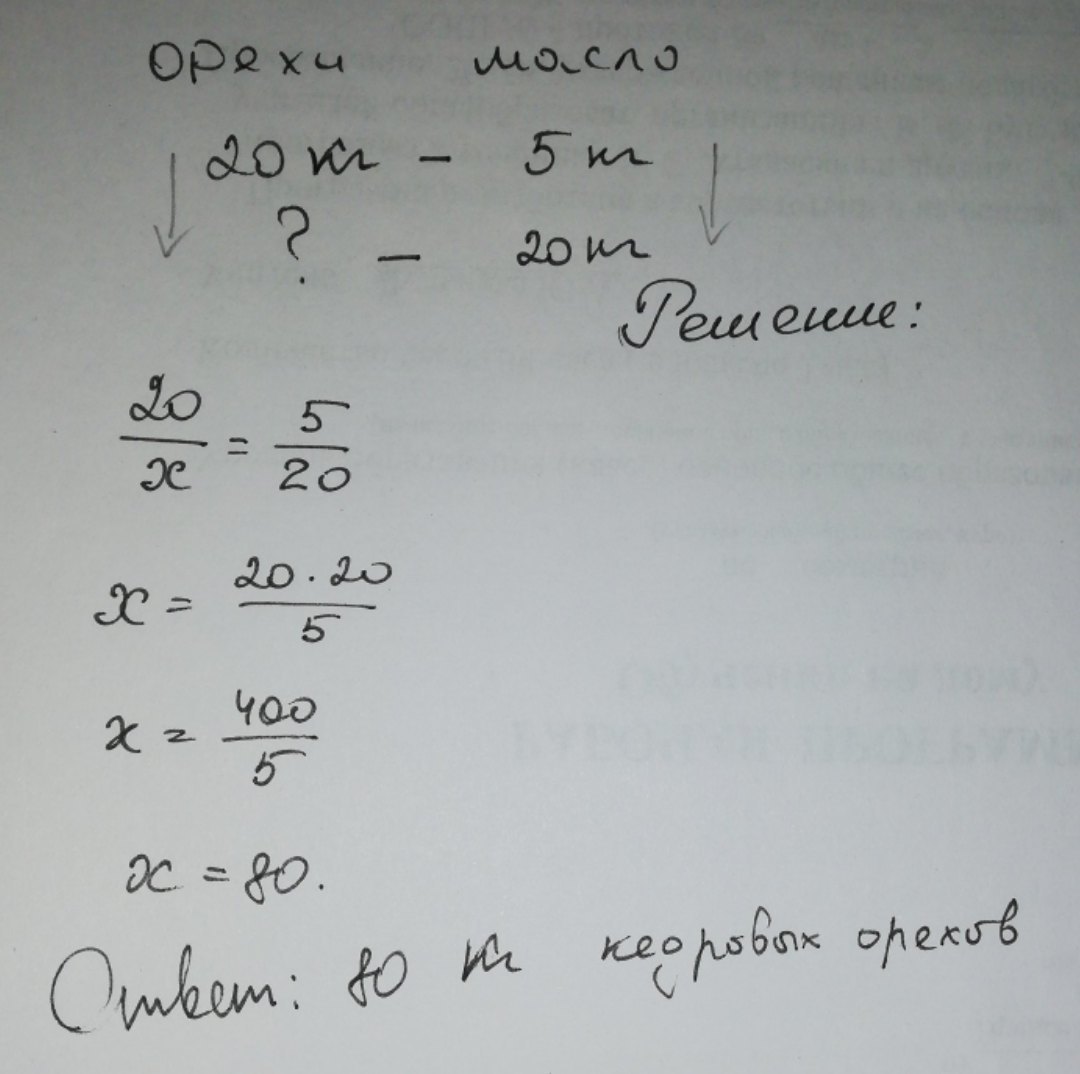 орехи масло
20 кг – 5 кг
? – 20 кг
Решение:
20/x = 5/20
x = 20·20/5
x = 400/5
x = 80.
Ответ: 80 кг кедровых орехов